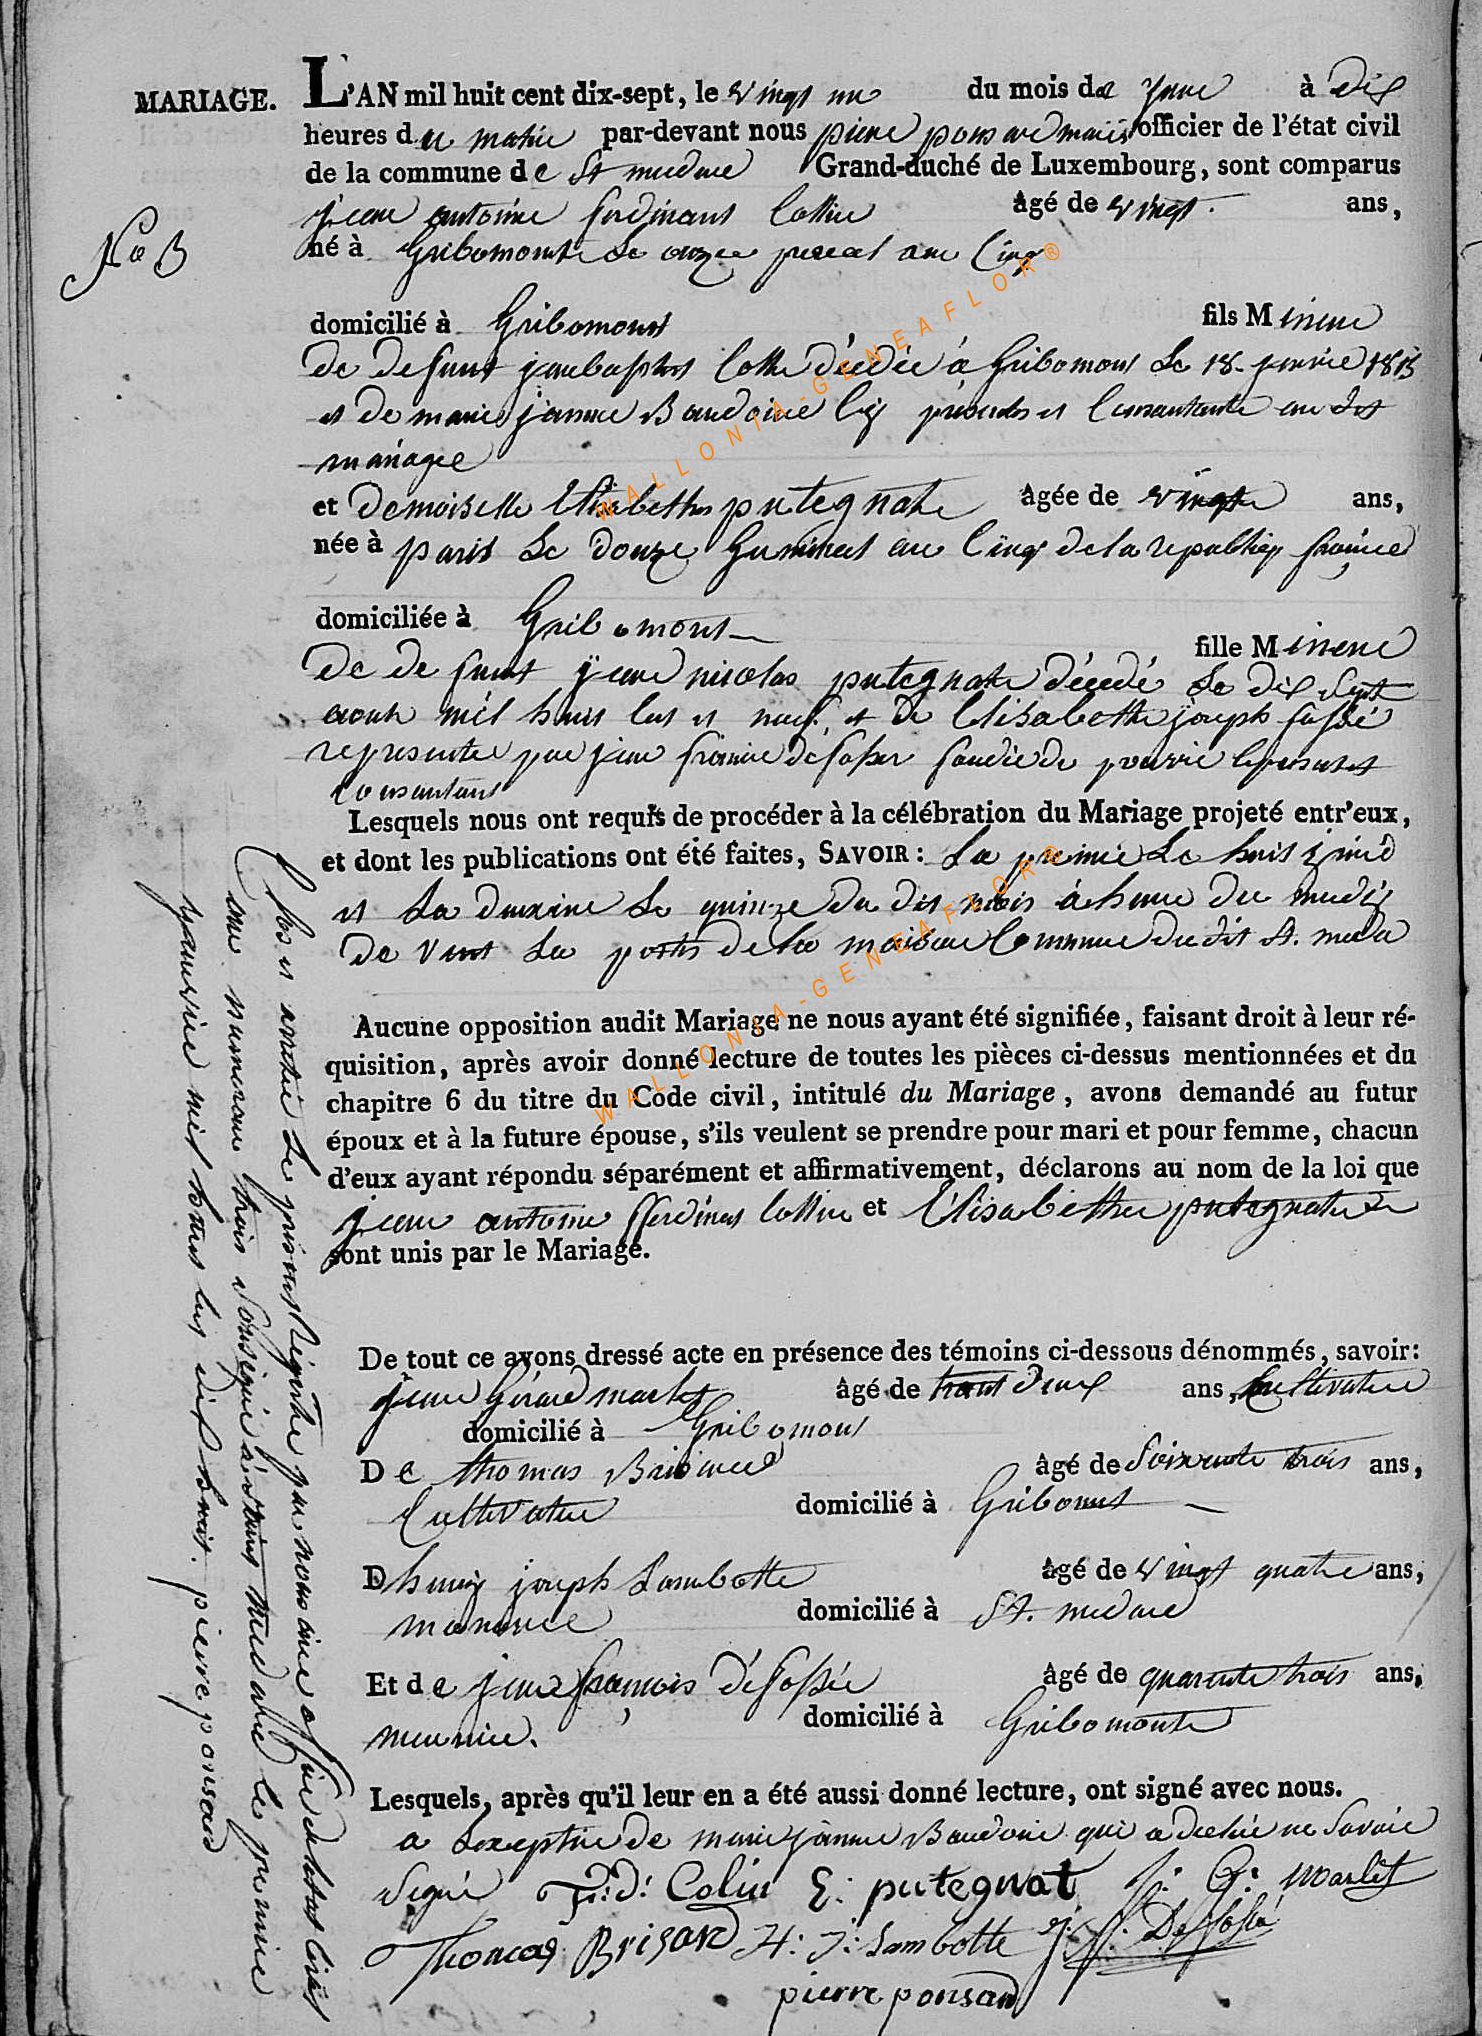 MARIAGE.
L'AN mil huit cent dix-sept, le vingt un du mois de June à dix
heures du matin par-devant nous pierre ponsard maire officier de l'état civil
de la commune de St medare Grand-duché de Luxembourg, sont comparus
jean antoine ferdinant Collin âgé de vingt ans,
No 3
né à Gribomont le onze prereal an Cinq
domicilié à Gribomont fils Mineur
de defunt jean baptist Collin décédé à Gribomont le 18 janvie 1813
et de marie janne Baudoin Cy presente et Consantante au dit
mariage
et demoiselle Elisabethe putegnate âgée de vingt ans,
née à paris le douze Germinal an Cinq de la republiq france
domiciliée à Gribomont
fille Mineure
de defunt jean nicolas putegnate décédé le dix Sept
aout mil huit Cent et neuf et de Elisabethe joseph fossé
representee par jean françois défosser fondé de pouvoir Cy present et
Consantant
Lesquels nous ont requis de procéder à la célébration du Mariage projeté entr'eux,
et dont les publications ont été faites, SAVOIR : La premie Le huit june
et La deuxieme Le quinze du dit mois à heure de medi
devant La porte de la maison Commune du dit St. meda
Aucune opposition audit Mariage ne nous ayant été signifiée, faisant droit à leur ré-
quisition, après avoir donné lecture de toutes les pièces ci-dessus mentionnées et du
chapitre 6 du titre du Code civil, intitulé du Mariage, avons demandé au futur
époux et à la future épouse, s'ils veulent se prendre pour mari et pour femme, chacun
d'eux ayant répondu séparément et affirmativement, déclarons au nom de la loi que
jean antoine fferdinant Collin et Elisabethe putegnate
sont unis par le Mariage.
De tout ce avons dressé acte en présence des témoins ci-dessous dénommés, savoir:
jean Gérard marlet âgé de trent deux ans, Cultivateur
domicilié à Gribomont
De thomas Brisard âgé de Soixente trois ans,
Cultivateur domicilié à Gribomt
D henry joseph Lambotte âgé de vingt quatre ans,
domicilié à St. medare
Et de jean françois défossée âgé de quarente trois ans,
meunier. domicilié à Gribomonte
Lesquels, après qu'il leur en a été aussi donné lecture, ont signé avec nous.
a Lexeptine de marie janne Baudoin qui a declaré ne Savoir
Signé F: d: Colin E: putegnat J: G: Marlet
Thomas Brisard H: J: Lambotte J: f: Deffossé
pierre ponsard
Clos et arreté Le present Régistre par nous officier de letat Civil
au numerau trois Soussigné à Saint medare le premier
janvier mil huit Cent dix huit. pierre ponsard
WALLONIA-GENEAFLOR®
WALLONIA-GENEAFLOR®